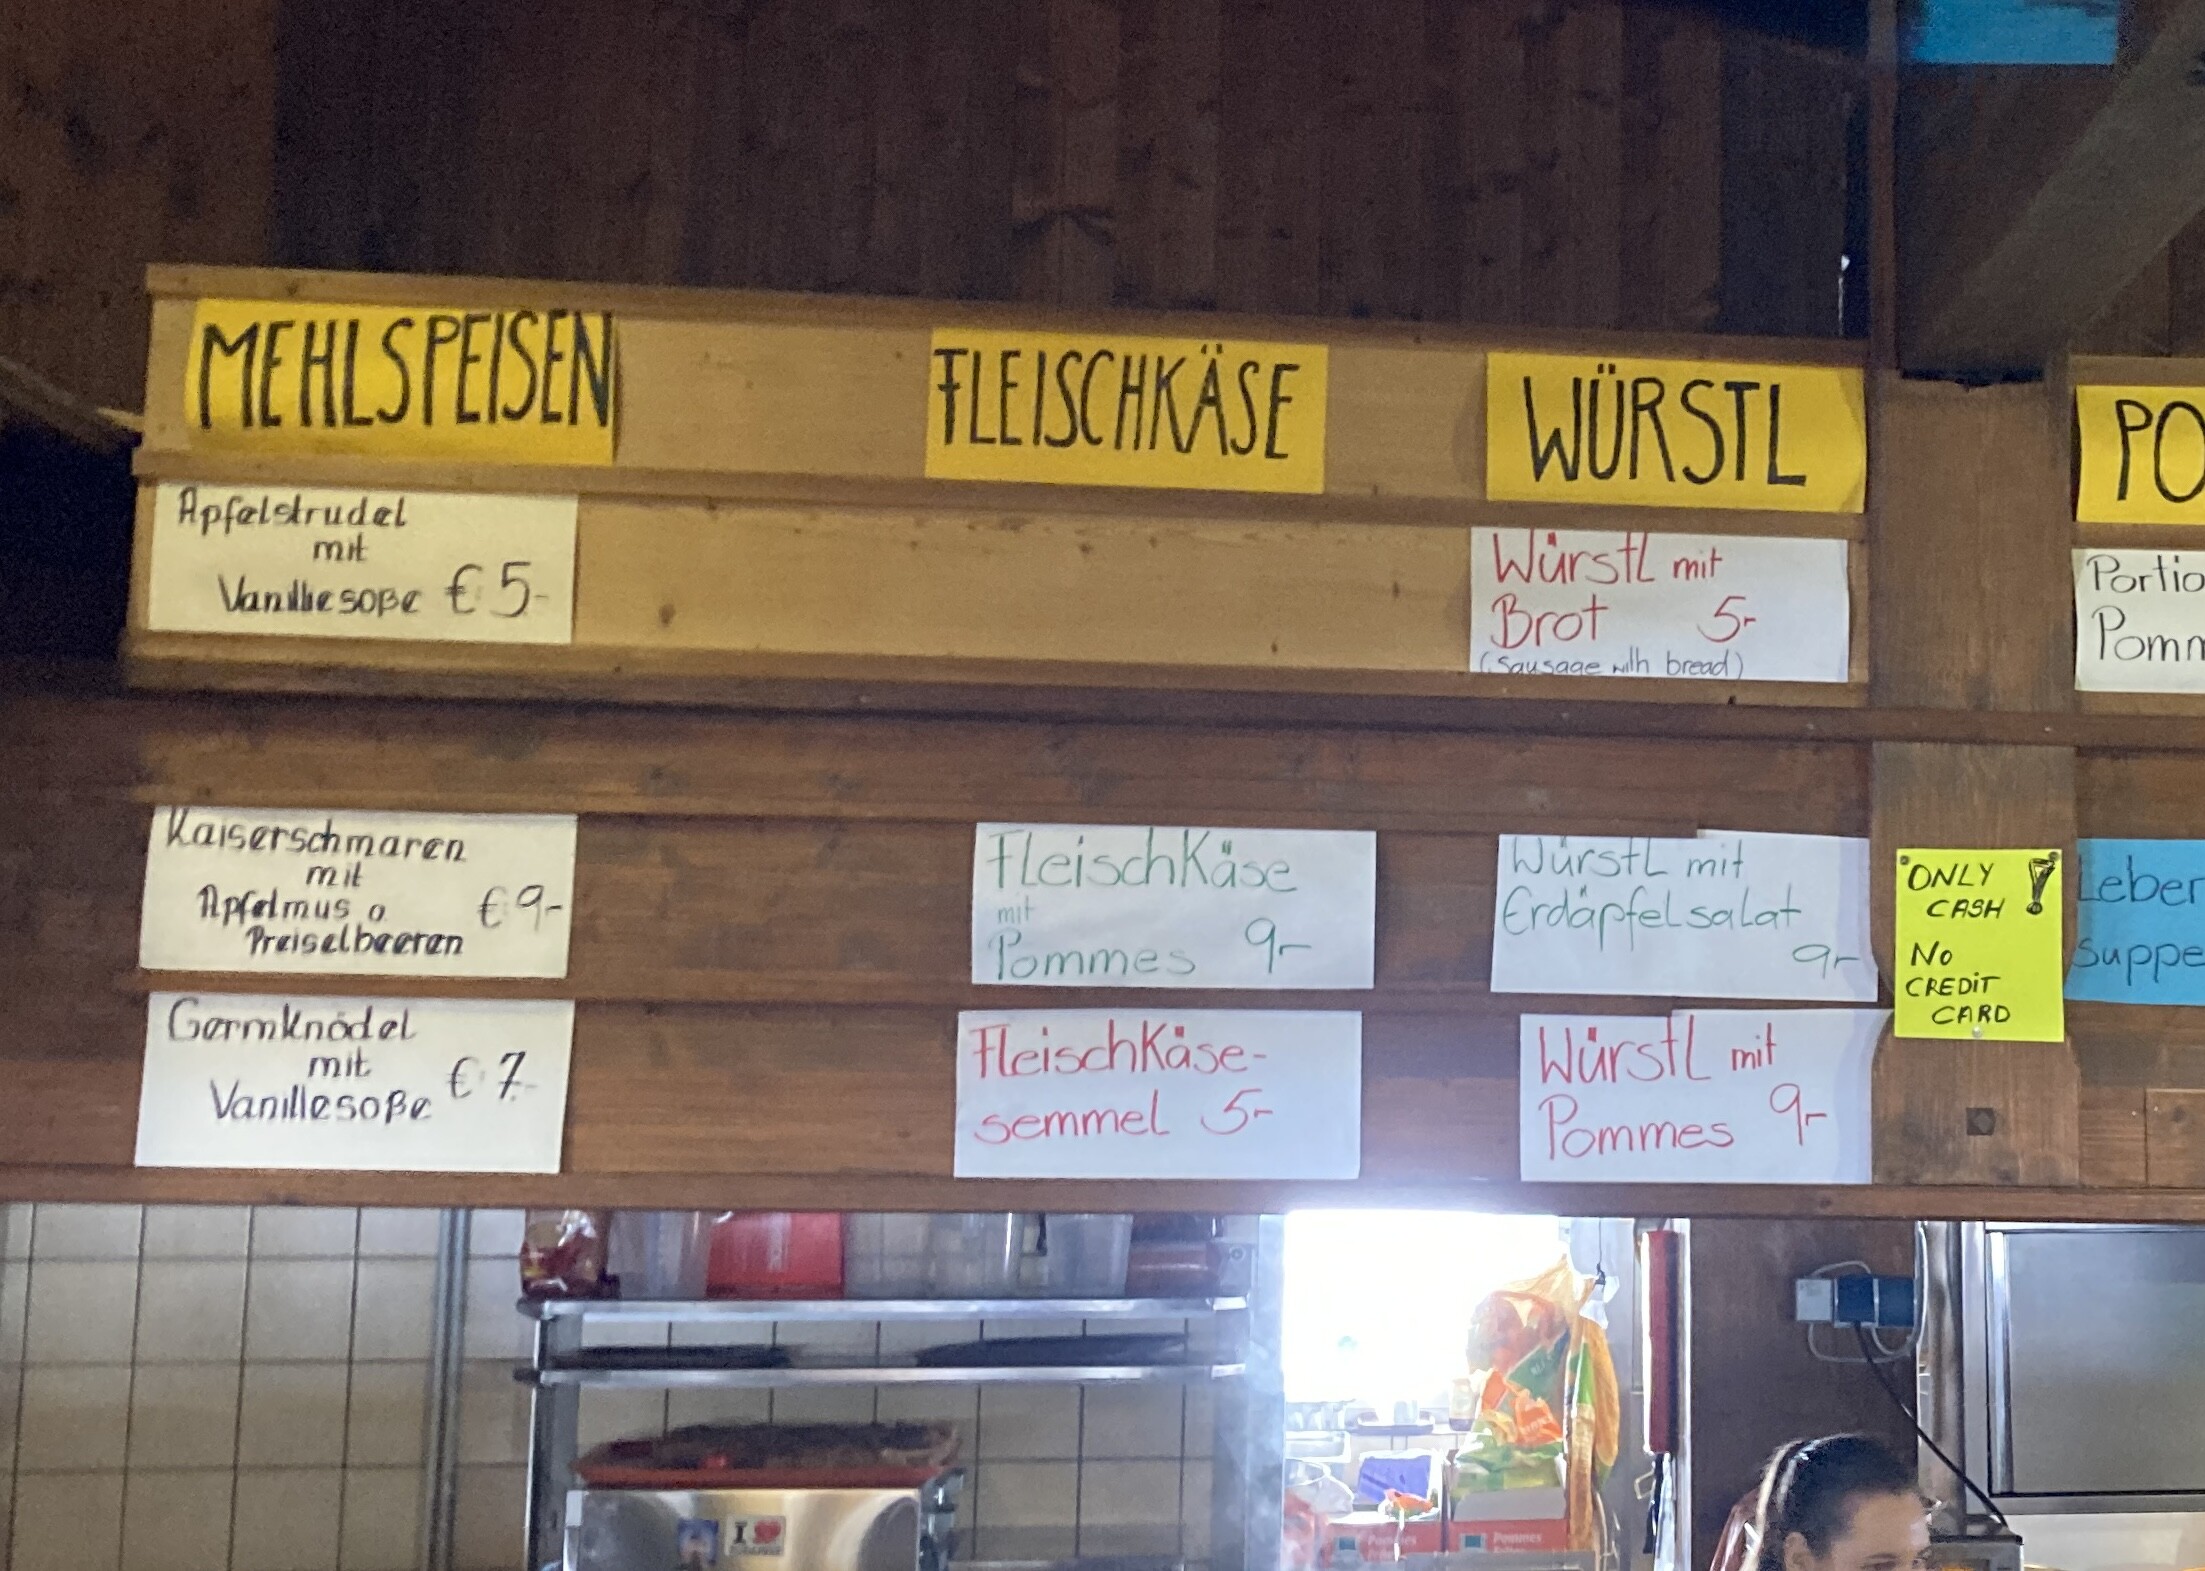 MEHLSPEISEN
Apfelstrudel
mit
Vanillesoße € 5-
Kaiserschmaren
mit
Apfelmus o
Preiselbeeren € 9-
Germknödel
mit
Vanillesoße € 7.-
FLEISCHKÄSE
FleischKäse
mit
Pommes 9-
FleischKäse-
semmel 5-
WÜRSTL
Würstl mit
Brot 5-
(Sausage with bread)
Würstl mit
Erdäpfelsalat
9-
Würstl mit
Pommes 9-
ONLY
CASH !
NO
CREDIT
CARD
PO
Portio
Pomm
Leber
suppe
I ❤
Pommes
Pommes